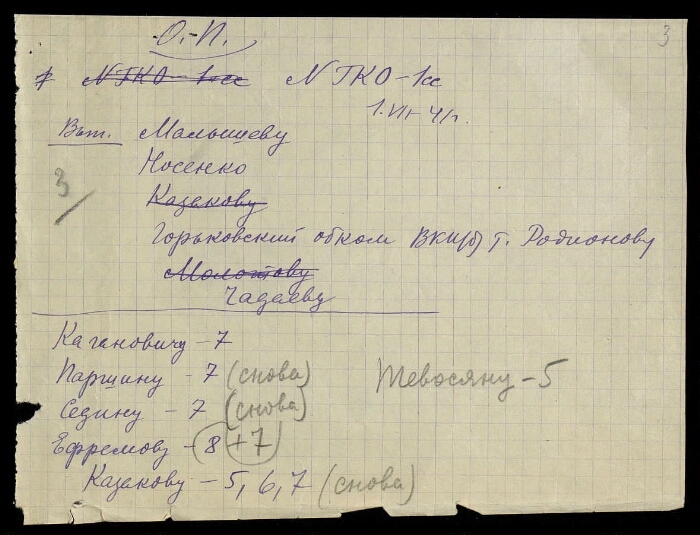 3
О.-П.
N ГКО-1сс N ГКО-1сс
1.VII-41г.
Вып. Малышеву
Носенко
3
Казакову
Горьковский обком ВКП(б) т. Родионову
Молотову
Чадаеву
Кагановичу - 7
Паршину - 7 (снова) Тевосяну - 5
Седину - 7 (снова)
Ефремову - 8 + 7
Казакову - 5, 6, 7 (снова)